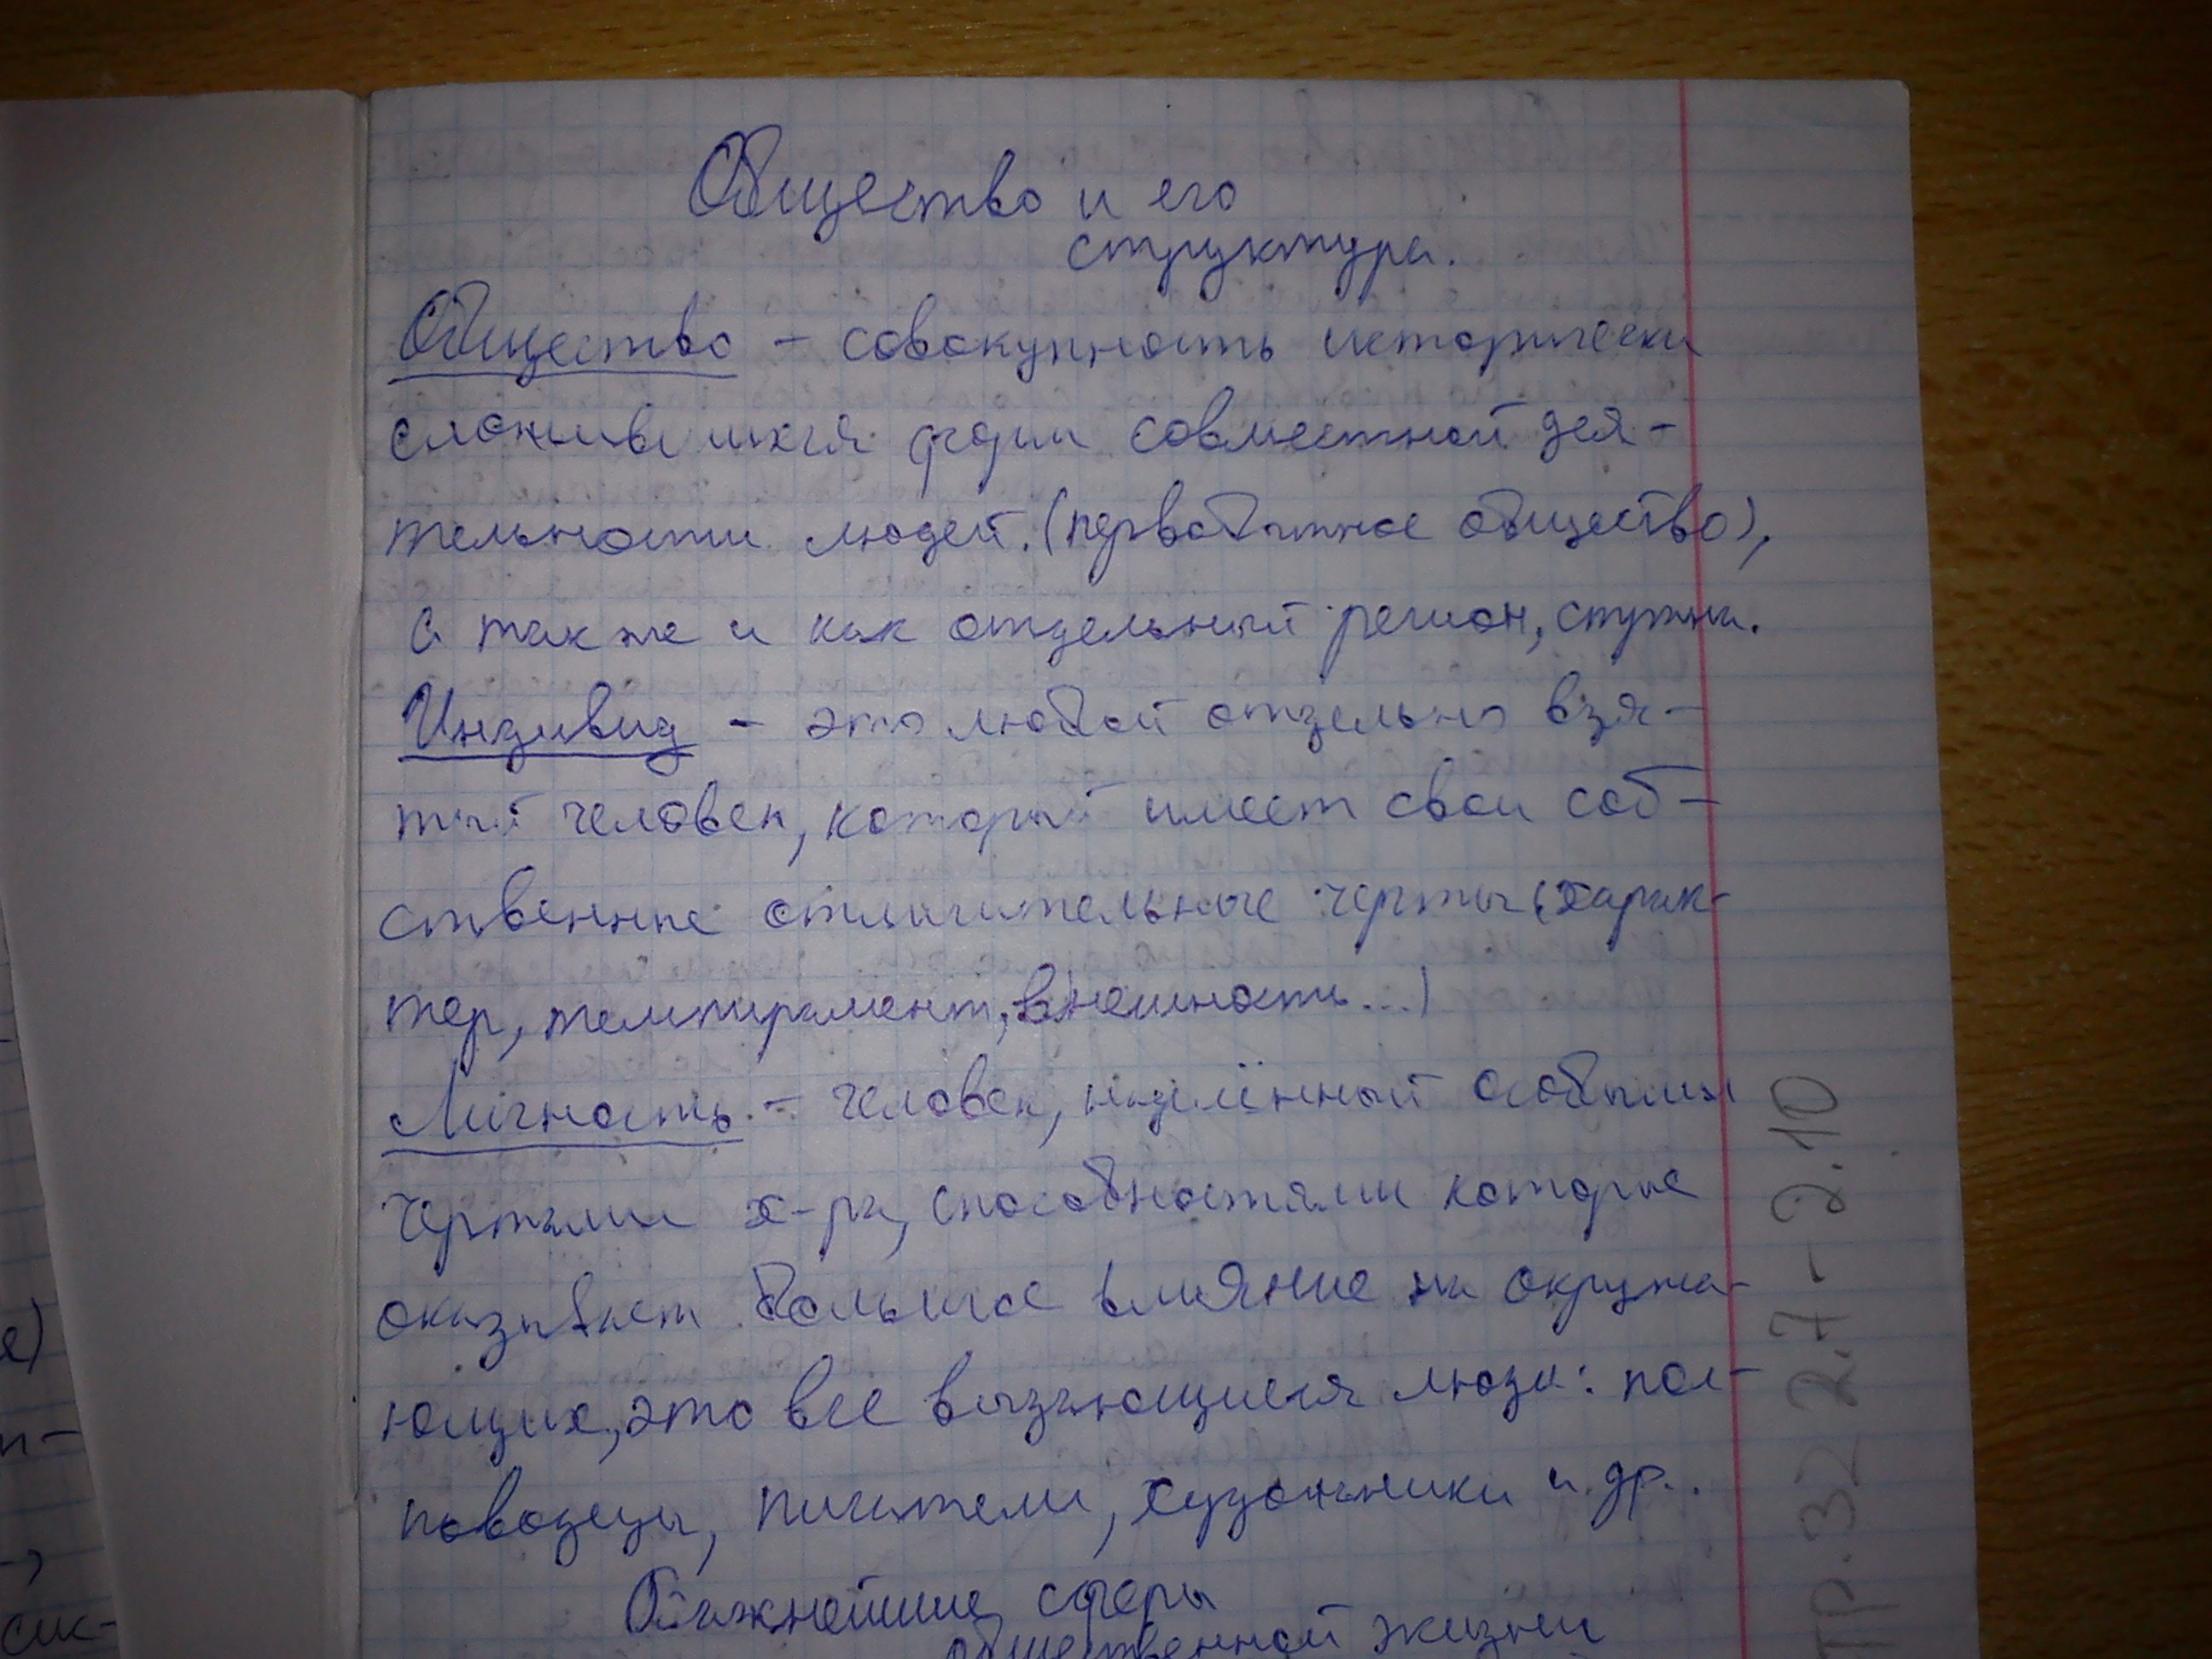 Общество и его
структура.
Общество - совокупность исторически
сложившихся форм совместной дея-
тельности людей. (первобытное общество),
а также и как отдельный регион, страна.
Индивид - это любой отдельно взя-
тый человек, который имеет свои соб-
ственные отличительные черты (харак-
тер, темпирамент, внешность...)
Личность - человек, наделённый особыми
чертами х-ра, способностями которые
оказывает большое влияние на окружа-
ющих, это все выдающиеся люди: пол-
поводцы, писатели, художники и др..
Важнейшие сферы
общественной жизни
тр. 32 2.7-2.10
е)
п-
сик-